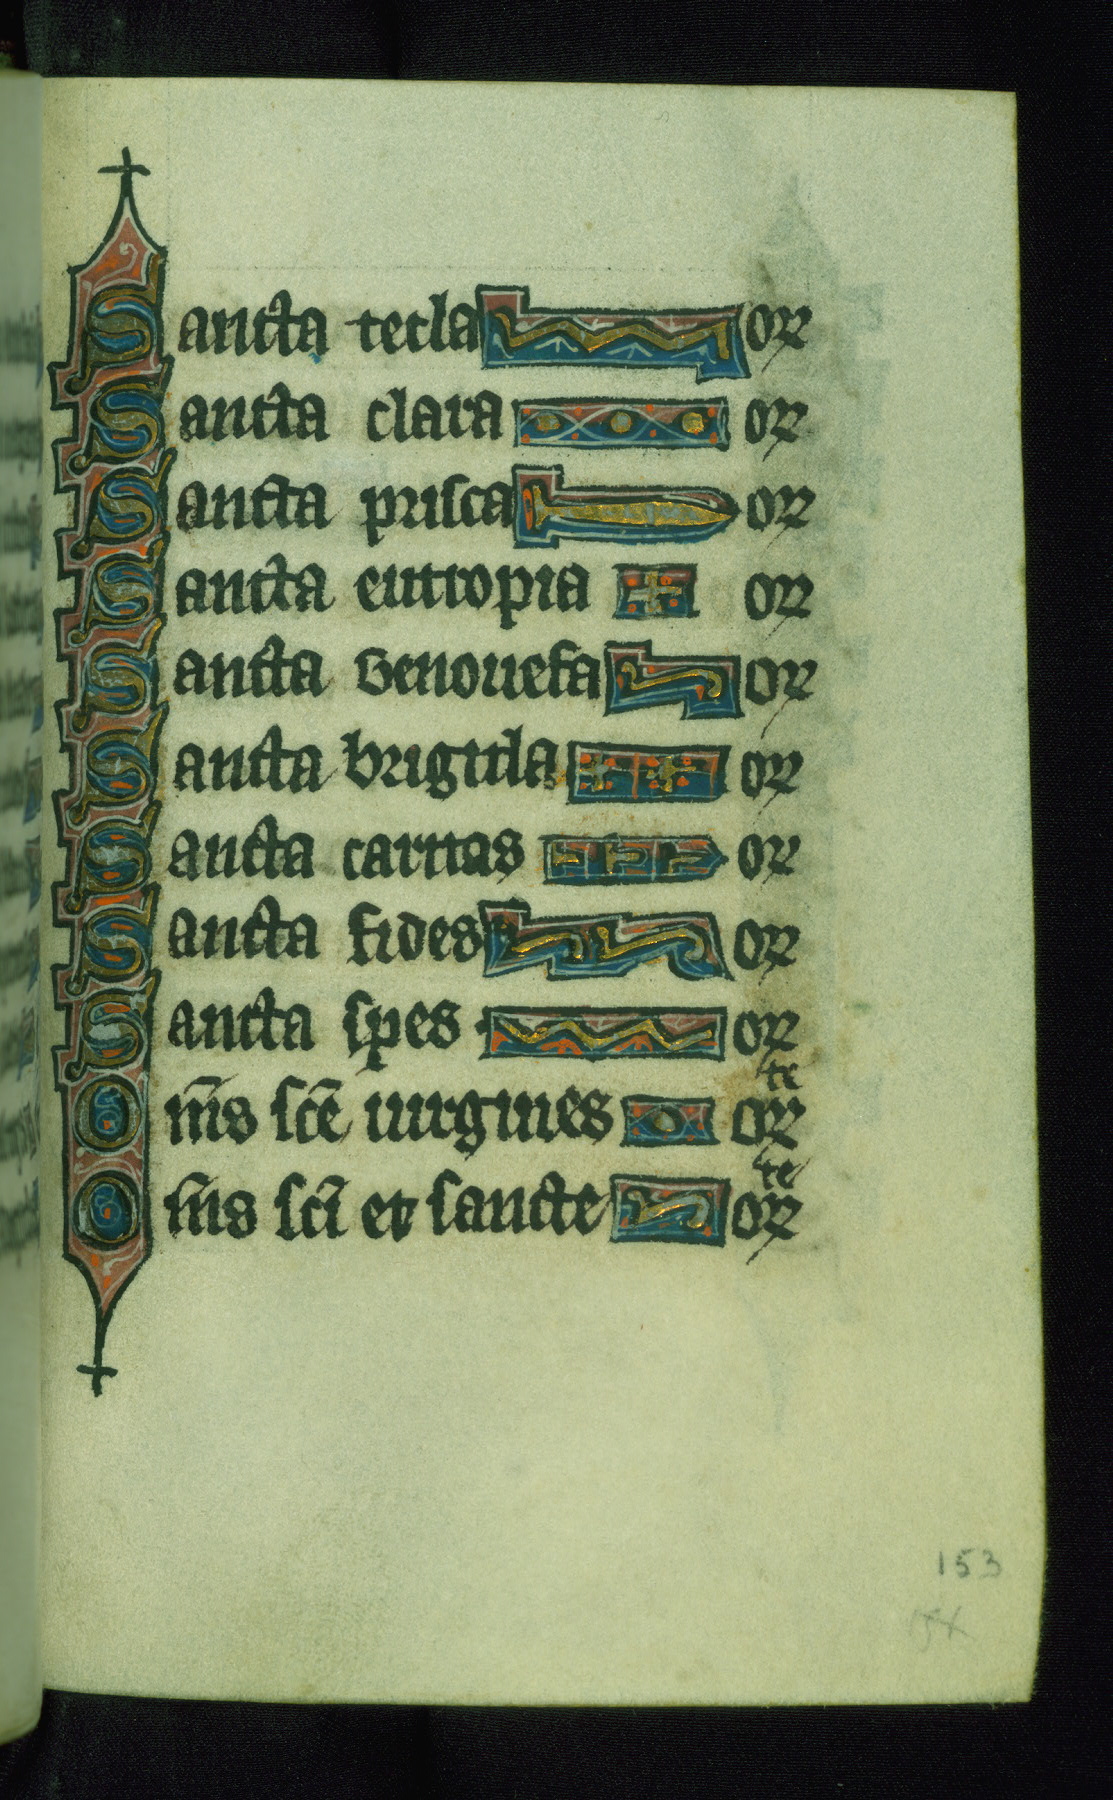 Sancta tecla or
Sancta clara or
Sancta prisca or
Sancta eutropia or
Sancta Genouefa or
Sancta brigida or
Sancta caritas or
Sancta fides or
Sancta spes or
Om̄s sc̄e uirgines or te
Om̄s sc̄i et sancte or te
153